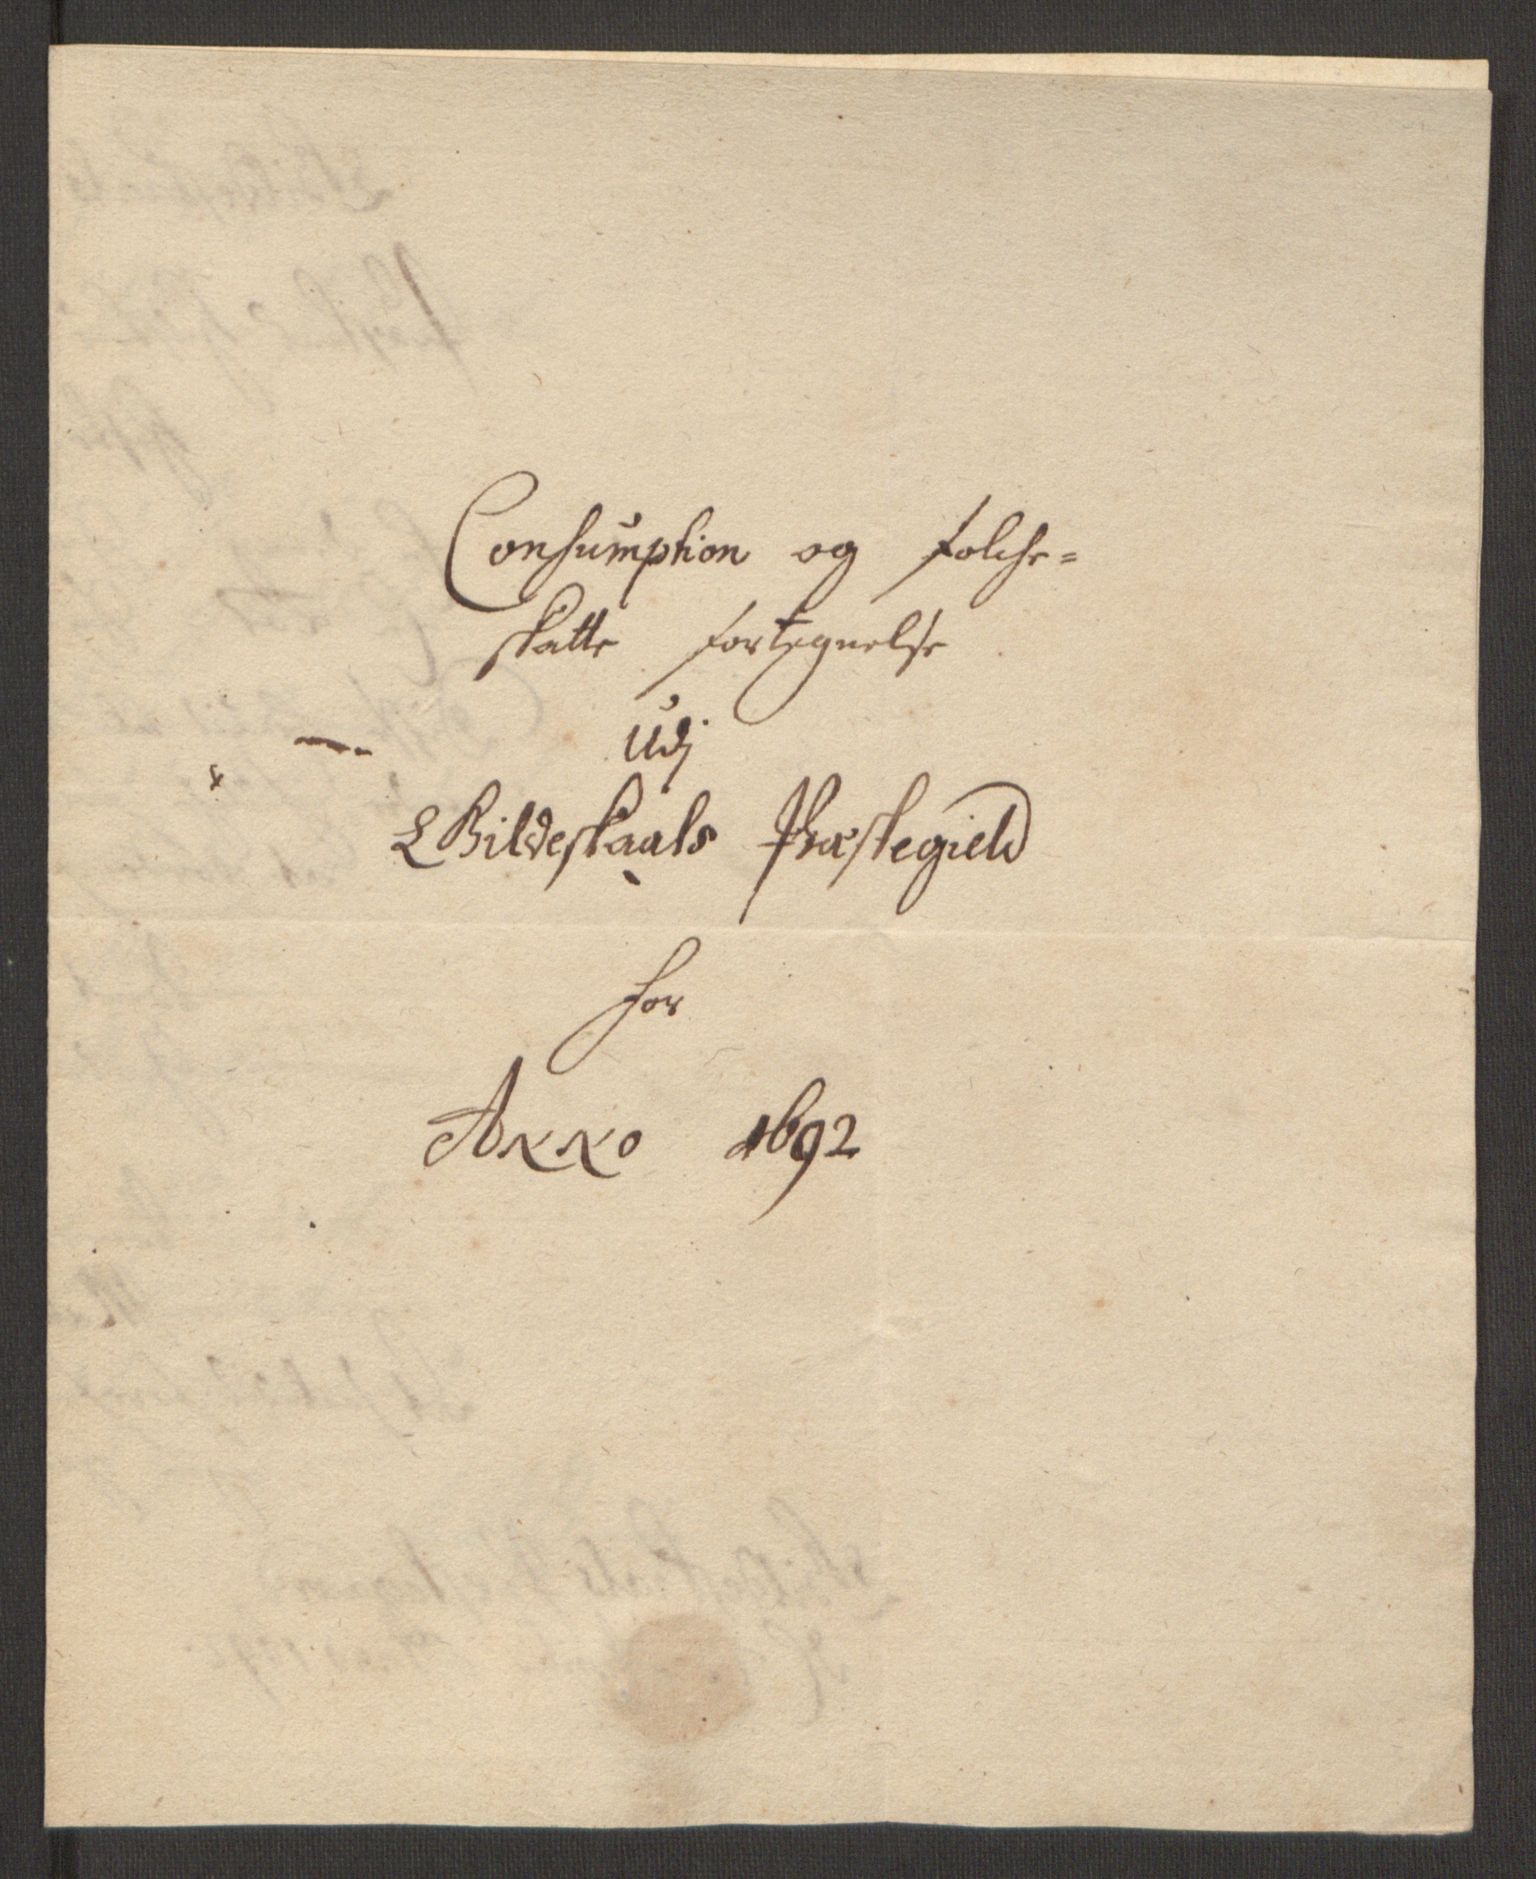 Consumption og folche=
skatte fortegnelse
Udj
Bildeskaals Præstegield
for
Anno 1692